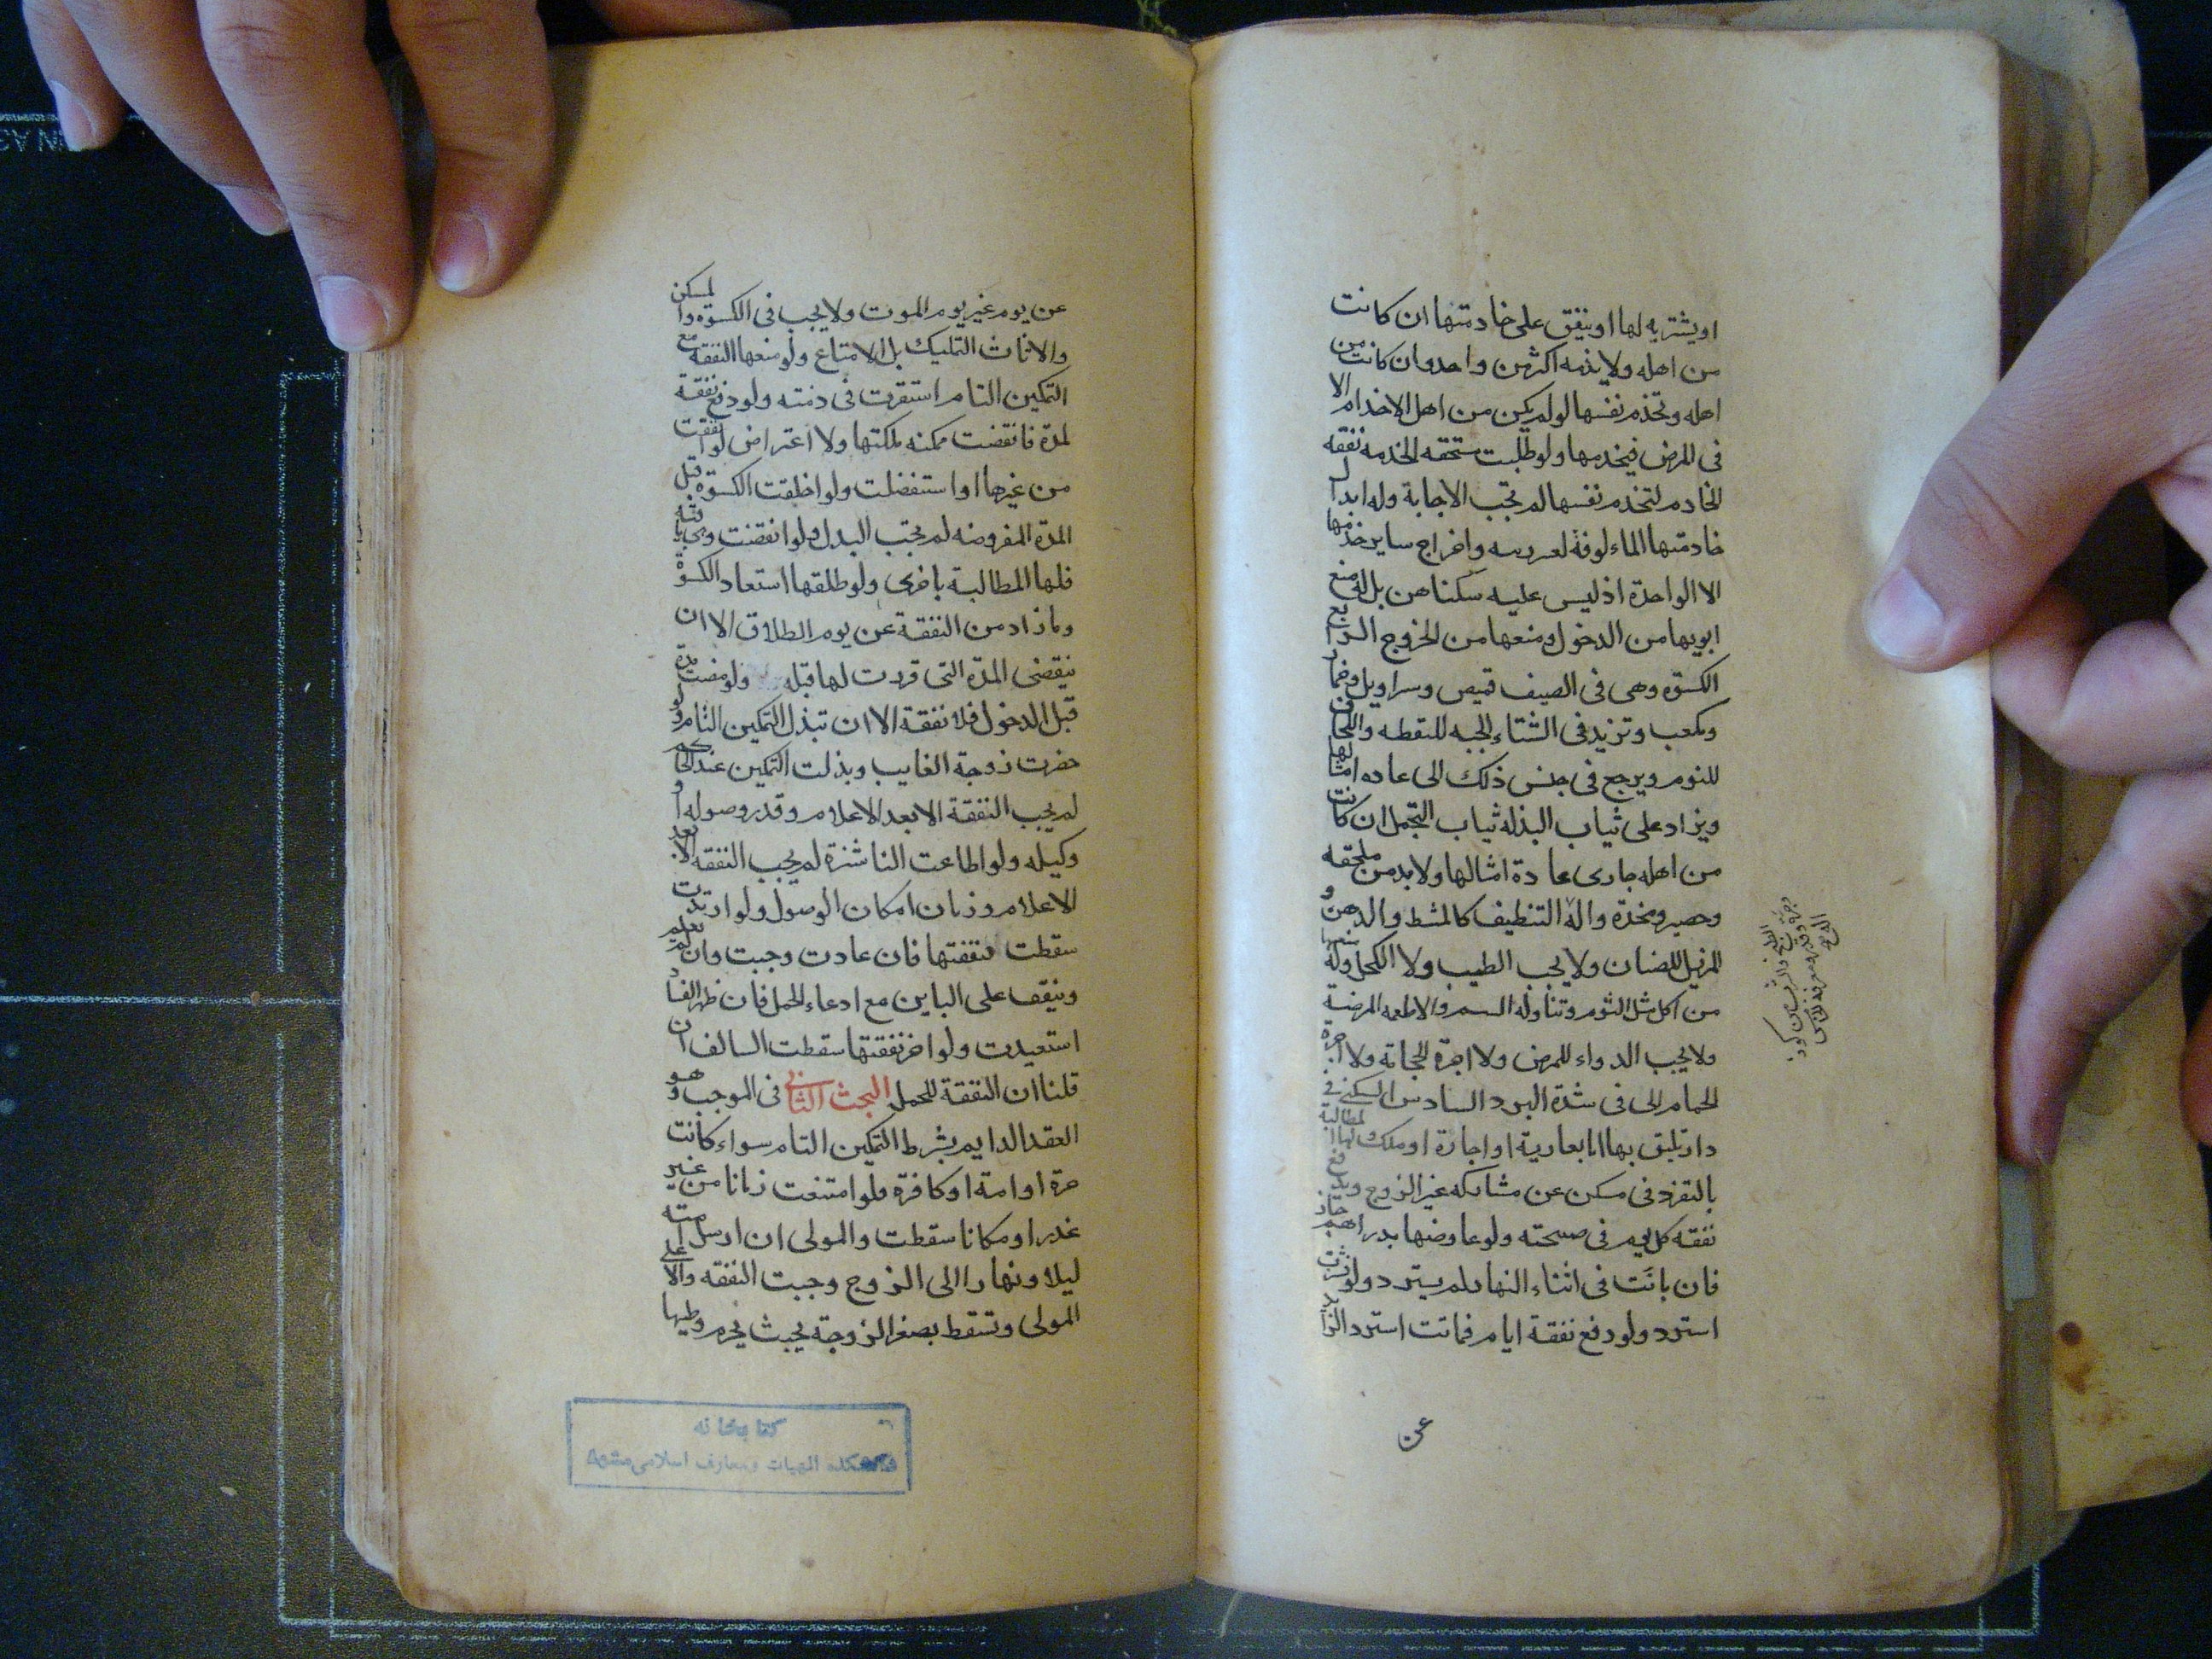 او يشتريه لها او ينفق على خادمتها ان كانت
من اهله ولا يلزمه اكثر من واحد وان كانت من
اهله وتخدم نفسها لو لم يكن من اهل الاخدام الا
فى المرض فيخدمها ولو طلبت مستحقه الخدمه نفقه
الخادم لتخدم نفسها لم تجب الاجابة وله ابدال
خادمتها المالوفة لغير ريبه واخراج ساير خدمها
الا الواحدة اذ ليس عليه سكناهن بل له منع
ابويها من الدخول ومنعها من الخروج الرابع
الكسوة وهى فى الصيف قميص وسراويل وخمار
ومكعب وتزيد فى الشتاء الجبه للنقطه واللحاف
للنوم ويرجع فى جنس ذلك الى عاده امثالها
ويزاد على ثياب البذله ثياب التجمل ان كانت
من اهله جارى عادة امثالها ولا بد من ملحقه
وحصير ومخدة واله التنظيف كالمشط والدهن و
المزيل للضنان ولا يجب الطيب ولا الكحل وله منعها
من اكل مثل الثوم وتناوله السم والاطعمه المرضية
ولا يجب الدواء للمرض ولا اجرة الحجامة ولا اجرة
الحمام الى فى شدة البرد السادس السكنى فى
دار تليق بها اما بعارية او اجارة او ملك ولها المطالبة
بالتفرد فى مسكن عن مشاركه غير الزوج ويدفع
نفقه كل يوم فى صبيحته ولو عاوضها بدراهم جاز
فان بانت فى اثناء النهار لم يسترد ولو نشزت
استرد ولو دفع نفقة ايام فماتت استرد الزايد
عن
عن يوم غير يوم الموت ولا يجب فى الكسوة والمسكن
والاثاث التمليك بل الامتاع ولو منعها النفقه مع
التمكين التام استقرت فى ذمته ولو دفع نفقة
لمدة فانقضت ممكنه ملكتها ولا اعتراض لو انفقت
من غيرها او استفضلت ولو اخلقت الكسوة قبل
المدة المفروضه لم يجب البدل ولو انقضت وهى باقية
فلها المطالبة باخرى ولو طلقها استعاد الكسوة
وما زاد من النفقة عن يوم الطلاق الا ان
ينقضى المدة التى قررت لها قبله ولو مضت مدة
قبل الدخول فلا نفقة الا ان تبذل التمكين التام ولو
حضرت زوجة الغايب وبذلت التمكين عند الحاكم
لم يجب النفقة الا بعد الاعلام وقدر وصوله او
وكيله ولو اطاعت الناشزة لم يجب النفقه الا بعد
الاعلام وزمان امكان الوصول ولو ارتدت
سقطت نفقتها فان عادت وجبت وان لم يعلم
وينفق على الباين مع ادعاء الحمل فان ظهر الفساد
استعيدت ولو اخر نفقتها سقطت السالف ان
قلنا ان النفقة للحمل البحث الثانى فى الموجب وهو
العقد الدايم بشرط التمكين التام سواء كانت
حرة او امة او كافرة فلو امتنعت زمانا من غير
عذر او مكانا سقطت والمولى ان ارسل امته
ليلا ونهارا الى الزوج وجبت النفقه والا على
المولى وتسقط بصغر الزوجة بحيث يحرم وطيها
كتابخانه
دانشكده الهيات ومعارف اسلامى مشهد